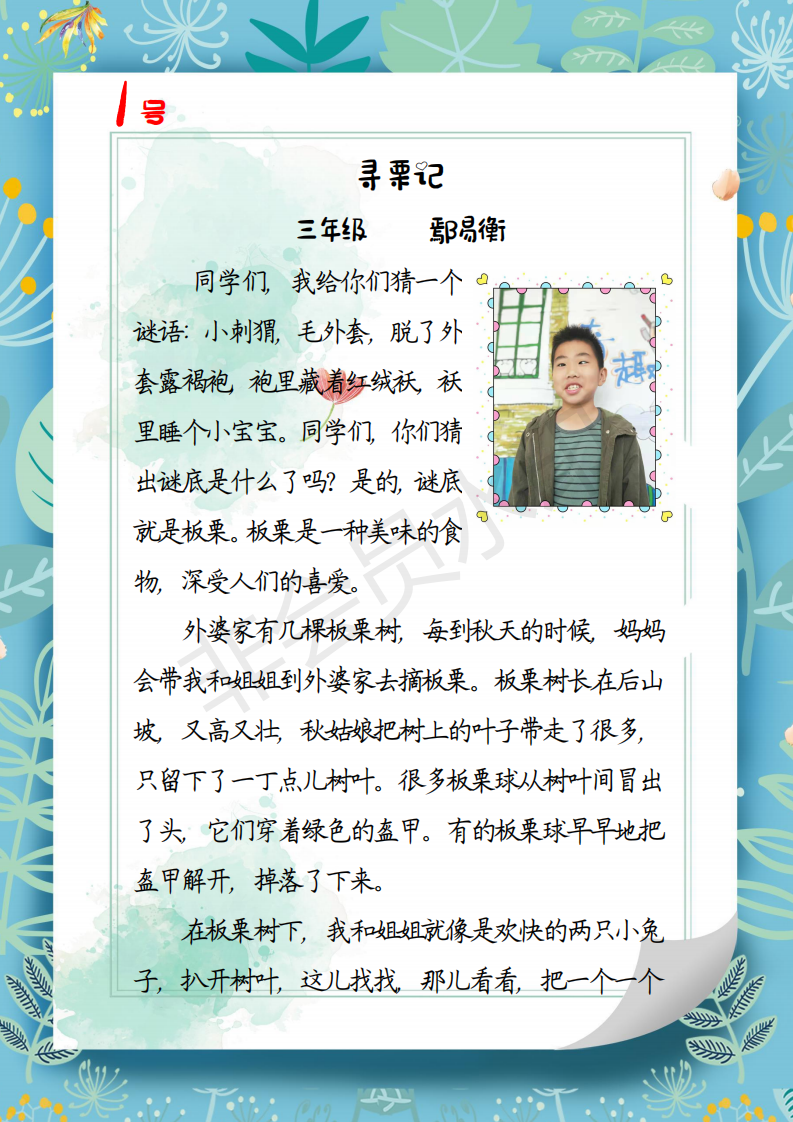 1号
寻栗记
三年级 鄢易衡
同学们，我给你们猜一个
谜语：小刺猬，毛外套，脱了外
套露褐袍，袍里藏着红绒袄，袄
里睡个小宝宝。同学们，你们猜
出谜底是什么了吗？是的，谜底
就是板栗。板栗是一种美味的食
物，深受人们的喜爱。
外婆家有几棵板栗树，每到秋天的时候，妈妈
会带我和姐姐到外婆家去摘板栗。板栗树长在后山
坡，又高又壮，秋姑娘把树上的叶子带走了很多，
只留下了一丁点儿树叶。很多板栗球从树叶间冒出
了头，它们穿着绿色的盔甲。有的板栗球早早地把
盔甲解开，掉落了下来。
在板栗树下，我和姐姐就像是欢快的两只小兔
子，扒开树叶，这儿找找，那儿看看，把一个一个
非会员水
趣